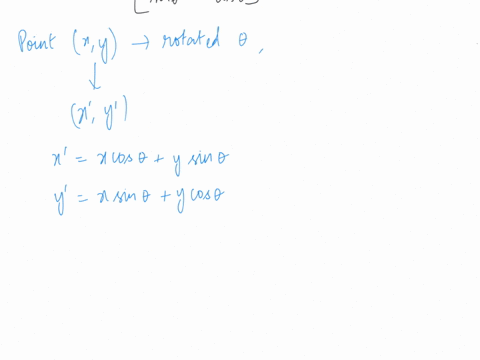 Point (x, y) → rotated θ,
↓
(x', y')
x' = x cos θ + y sin θ
y' = x sin θ + y cos θ